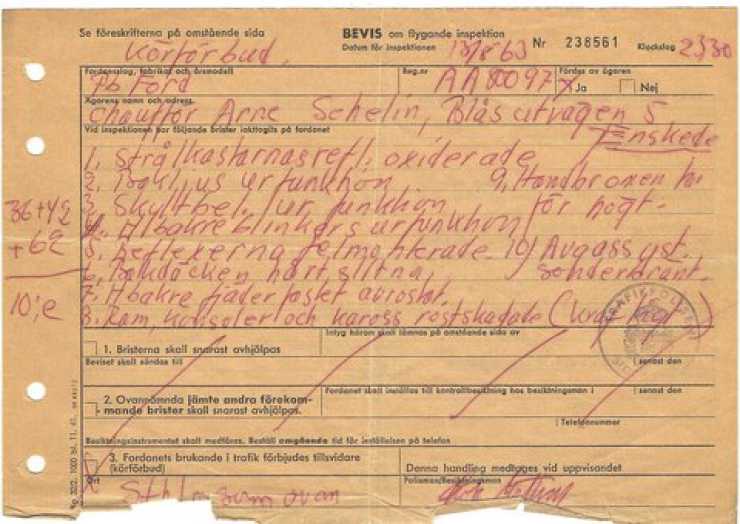 Se föreskrifterna på omstående sida BEVIS om flygande inspektion
Körförbud. Datum för inspektionen 13/8 63 Nr 238561 Klockslag 2330
Fordonsslag, fabrikat och årsmodell Reg.nr Fördes av ägaren
Pb Ford AA80097 x Ja Nej
Ägarens namn och adress
Chaufför Arne Schelin, 5
Vid inspektionen har följande brister iakttagits på fordonet Enskede
1, Strålkastarnas refl. oxiderade
2, Bakljus ur funktion 9, Handbromsen
36+42 3, Skyltbel. ur funktion för högt.
4, H bakre blinkers ur funktion
+62 5, Reflexerna felmonterade 10/ Avgassyst.
6, Bakdäcken hårt slitna sönderbränt.
10:e 7, H bakre fjäderfästet avrostat.
8, Ram, konsoler och kaross rostskadade
Intyg härom skall lämnas på omstående sida av
1. Bristerna skall snarast avhjälpas
Beviset skall sändas till senast den
Fordonet skall inställas till kontrollbesiktning hos besiktningsman i senast den
2. Ovannämnda jämte andra förekom-
mande brister skall snarast avhjälpas.
Telefonnummer
Besiktningsinstrumentet skall medföras. Beställ omgående tid för inställelsen på telefon
x 3. Fordonets brukande i trafik förbjudes tillsvidare
(körförbud) Denna handling medtages vid uppvisandet
Ort Polisman/Besiktningsman
Sthlm som ovan